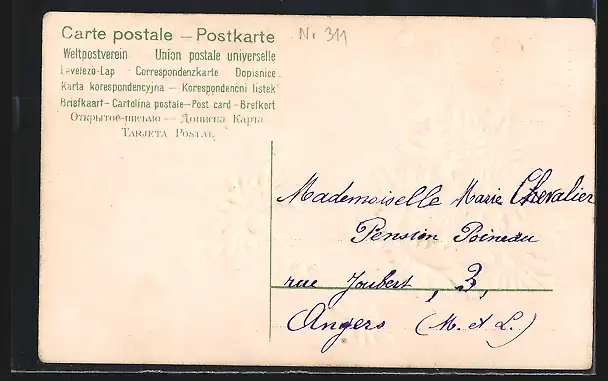 Carte postale — Postkarte
Nr 311
Weltpostverein - Union postale universelle
Levelezö-Lap - Correspondenzkarte Dopisnice
Karta korespondencyjna — Korespondenční listek
Briefkaart - Cartolina postale - Post card - Brefkort
Открытое письмо — Дописна Карта
Tarjeta Postal
Mademoiselle Marie Chevalier
Pension Poineau
rue Joubert, 3,
Angers (M. et L.)